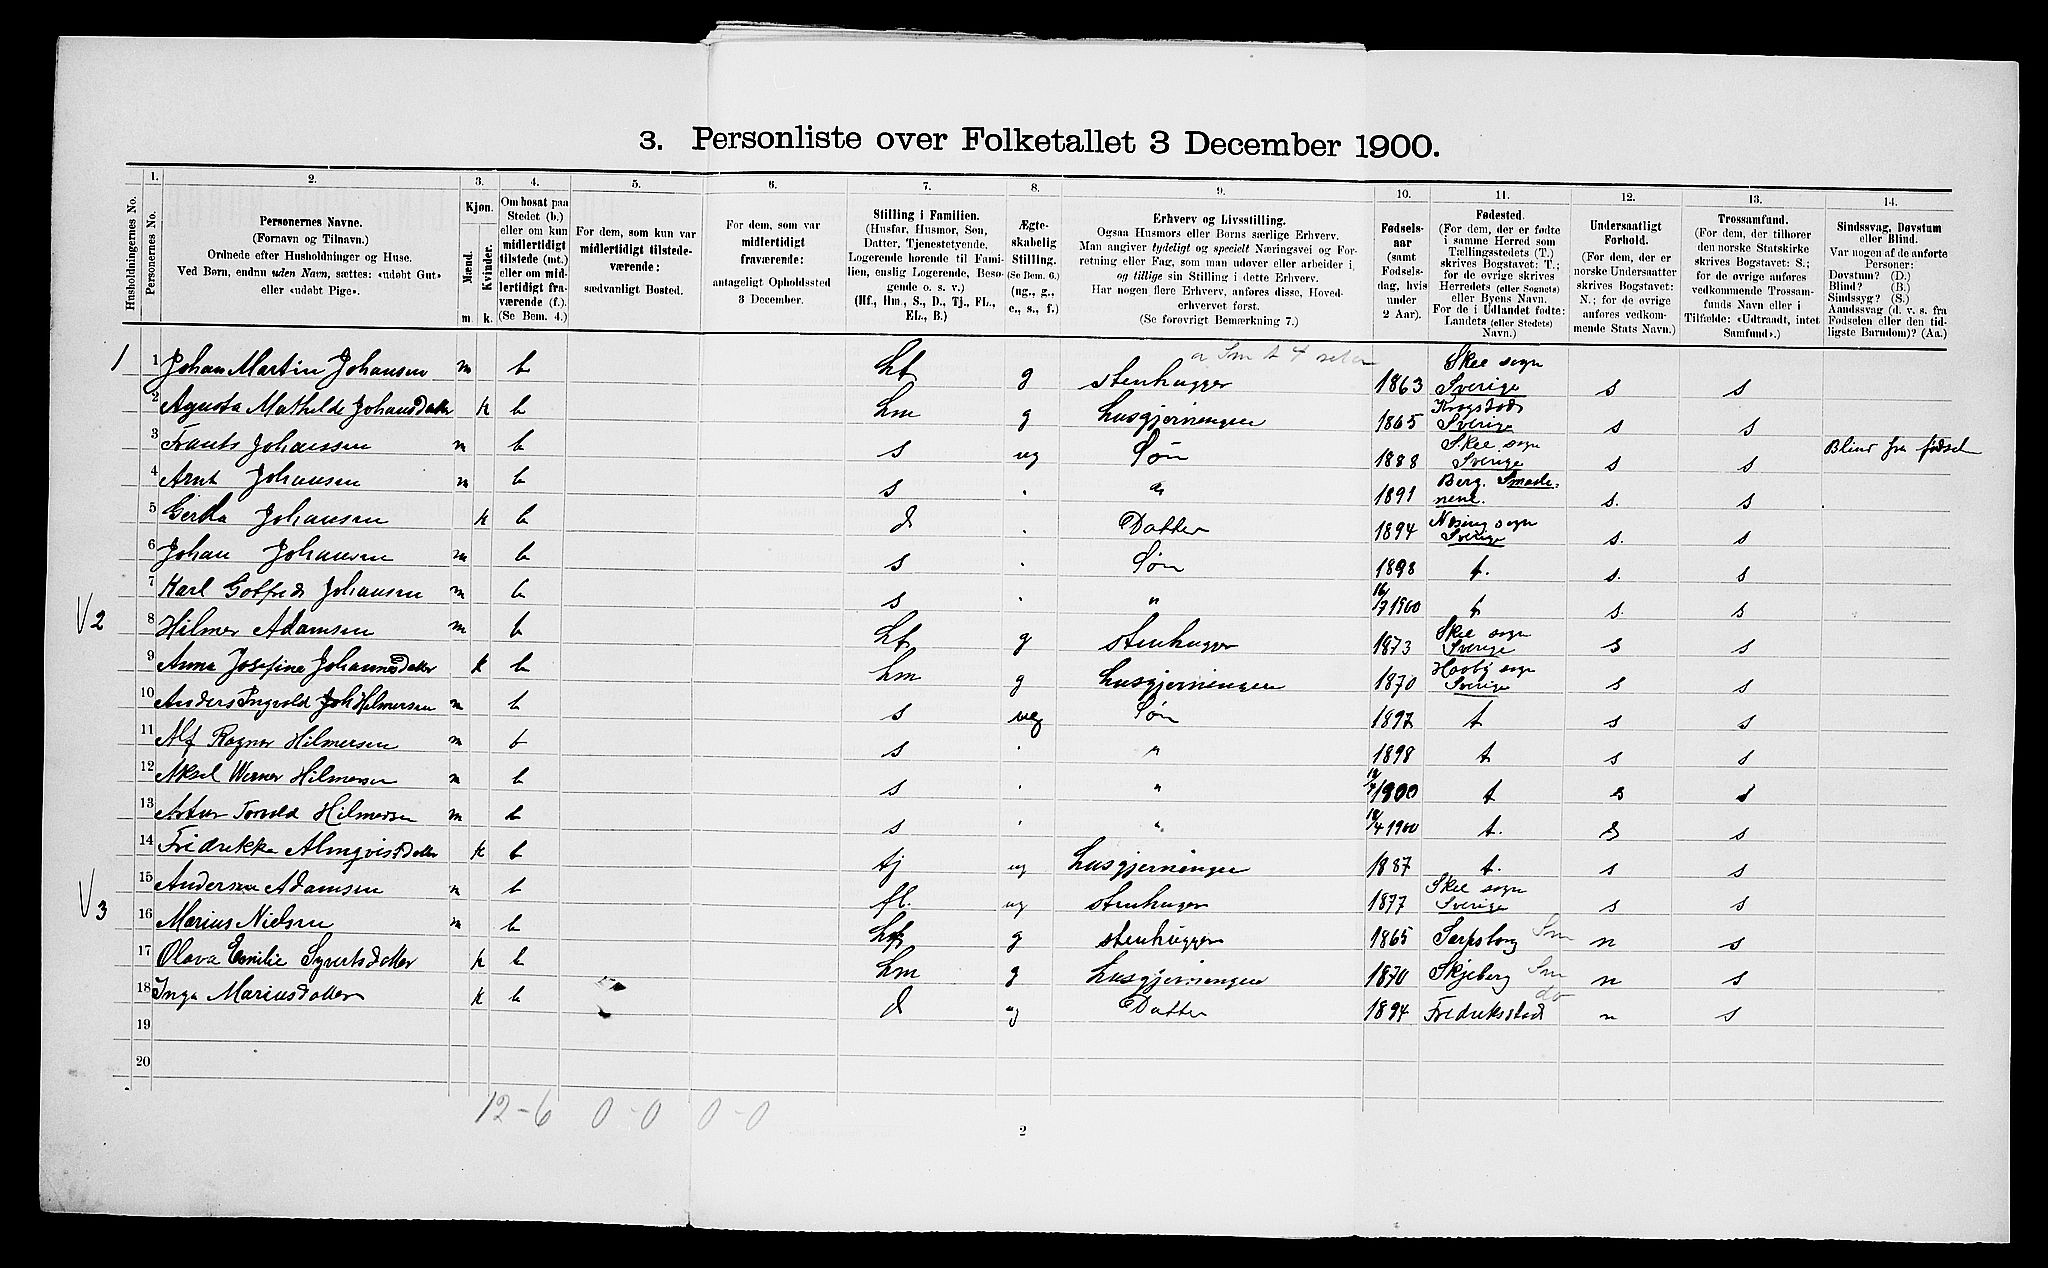 3. Personliste over Folketallet 3 December 1900.
Husholdningernes No.
1.
Personernes No.
2.
Personernes Navne.
(Fornavn og Tilnavn.)
Ordnede efter Husholdninger og Huse.
Ved Børn, endnu uden Navn, sættes: «udøbt Gut»
eller «udøbt Pige».
3.
Kjøn.
Mænd.
Kvinder.
m. k.
4.
Om bosat paa
Stedet (b.)
eller om kun
midlertidigt
tilstede (mt.)
eller om mid-
lertidigt fra-
værende (f.).
(Se Bem. 4.)
5.
For dem, som kun var
midlertidigt tilstede-
værende:
sædvanligt Bosted.
6.
For dem, som var
midlertidigt
fraværende:
antageligt Opholdssted
3 December.
7.
Stilling i Familien.
(Husfar, Husmor, Søn,
Datter, Tjenestetyende,
Logerende hørende til Fami-
lien, enslig Logerende, Besø-
gende o. s. v.)
(Hf., Hm., S., D., Tj., FL.,
EL., B.)
8.
Ægte-
skabelig
Stilling.
(Se Bem. 6.)
(ug., g.,
e., s., f.)
9.
Erhverv og Livsstilling.
Ogsaa Husmors eller Børns særlige Erhverv.
Man angiver tydeligt og specielt Næringsvei og For-
retning eller Fag, som man udøver eller arbeider i,
og tillige sin Stilling i dette Erhverv.
Har nogen flere Erhverv, anføres disse, Hoved-
erhvervet først.
(Se forøvrigt Bemærkning 7.)
10.
Fødsels-
aar
(samt
Fødsels-
dag, hvis
under
2 Aar).
11.
Fødested.
(For dem, der er fødte
i samme Herred som
Tællingsstedets (T.)
skrives Bogstavet: T.;
for de øvrige skrives
Herredets (eller Sognets)
eller Byens Navn.
For de i Udlandet fødte:
Landets (eller Stedets)
Navn.)
12.
Undersaatligt
Forhold.
(For dem, der er
norske Undersaatter
skrives Bogstavet:
N.; for de øvrige
anføres vedkom-
mende Stats Navn.)
13.
Trossamfund.
(For dem, der tilhører
den norske Statskirke
skrives Bogstavet: S.;
for de øvrige anføres
vedkommende Trossam-
funds Navn eller i
Tilfælde: «Udtraadt, intet
Samfund».)
14.
Sindssvag, Døvstum
eller Blind.
Var nogen af de anførte
Personer:
Døvstum? (D.)
Blind? (B.)
Sindssyg? (S.)
Aandssvag (d. v. s. fra
Fødselen eller den tid-
ligste Barndom)? (Aa.)
1 1 Johan Martin Johansen m b hf g stenhugger 1863 Skee sogn Sverige s s
2 Agusta Mathilde JohansDatter k b hm g husgjerningen 1865 Krogstad Sverige s s
3 Frants Johanssen m b s ug Søn 1888 Skee sogn Sverige s s Blind fra fødsel
4 Arnt Johansen m b s " 1891 Berg. Smaalenene. s. s
5 Gerda Johansen k b d Datter 1894 sogn Sverige s. s
6 Johan Johansen m b s Søn 1898 t. s. s
7 Karl Gotfred Johansen m b s " 16/7 1900 t s. s
V2 8 Hilmer Adamsen m b hf g stenhugger 1873 Skee sogn Sverige s s
9 Anna Josefine JohannesDatter k b hm g husgjerningen 1870 sogn Sverige s s
10 Anders Ingvold Hilmersen m b s ug Søn 1897 t s s
11 Alf Ragnar Hilmersen m b s " 1898 t s s
12 Aksel Werner Hilmersen m b s " 1900 t s s
13 Artur Torvald Hilmersen m b s " 1900 t. s s
14 Fridrikke Almqvistdatter k b tj ug husgjerningen 1887 t. s s
15 Andersen Adamsen m b fl. ug stenhuger 1877 Skee sogn Sverige s s
V3 16 Marius Nielsen m b hf g stenhugger 1865 Sarpsborg Sm n s
17 Olava Emilie Syvertsdatter k b hm g husgjerningen 1870 Skjeberg Sm n s
18 Inga Mariusdatter k b d ug Datter 1894 Fredriksstad do n s
19
20
12-6 0-0 0-0
2